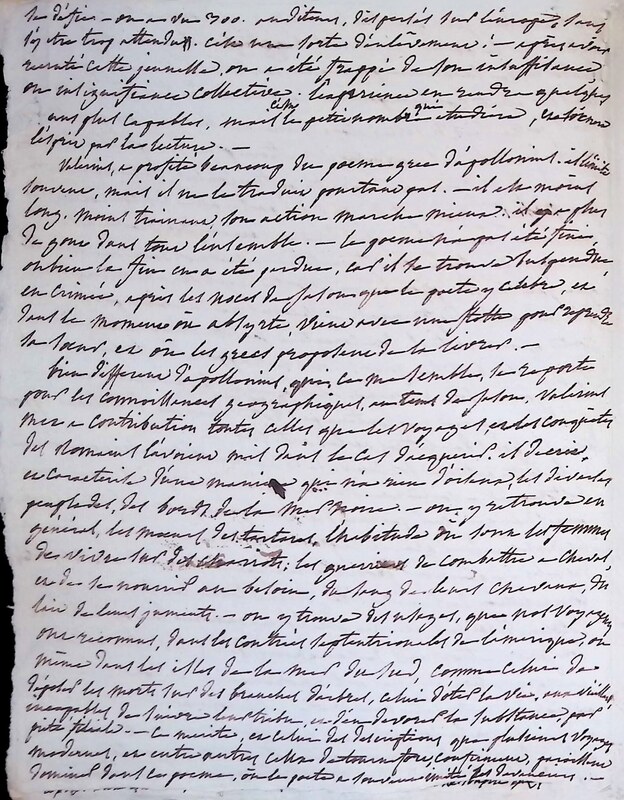 se défier – on a vu 300. auditeurs, dispersés sur l'europe, sans
s'y être trop attendus. c'est une sorte d'enlèvement ! – après avoir
recruté cette jeunesse, on a été frappé de son insuffisance,
ou insignifiance collective. l'expérience en rendra quelques
uns plus capables, mais c'est le petit nombre qui étudiera, et
l'esprit par la lecture. –
Valerius, a profité beaucoup du poeme grec d'apollonius. il l'imite
souvent, mais il ne le traduit pourtant pas. – il est moins
long. moins traînant son action marche mieux. il y a plus
de gout dans tout l'ensemble. – Le poeme n'a pas été fini
ou bien la fin en a été perdue, car il se trouve suspendu
en , après les noces de Jason que le poete y célèbre, et
dans le moment où absyrte, vient avec une flotte pour reprendre
sa soeur, et où les grecs proposent de la livrer. –
bien different d'apollonius, qui, ce me semble, se reporte
pour les connoissances geographiques, au tems de Jason, Valerius
met a contribution toutes celles que les voyages, et les conquêtes
des Romains l'avoient mis dans le cas d'acquerir. il decrit,
et caracterise d'une maniere qui n'a rien d'oiseux, les diverses
peuplades, des bords de la mer noire. – on y retrouve en
général, les moeurs des tartares, l'habitude où sont les femmes
de vivre sur des chariots, les guerriers de combattre a cheval,
et de se nourrir au besoin, du sang de leurs chevaux, du
lait de leurs juments. – on y trouve des usages, que nos voyageurs
ont reconnus, dans les contrées septentrionales de l'amerique, ou
même dans les isles de la mer du sud, comme celui de
déposer les morts sur des branches d'arbres, celui d'oter la vie, aux vieillards
incapables de suivre leur tribu, et d'en devorer la substance par
piété filiale. – Ce merite, est celui des descriptions que plusieurs voyageurs
modernes, et entre autres celles de tournefort, confirment,
dominent dans ce poeme, où le poete a souvent imité ses devanciers. –